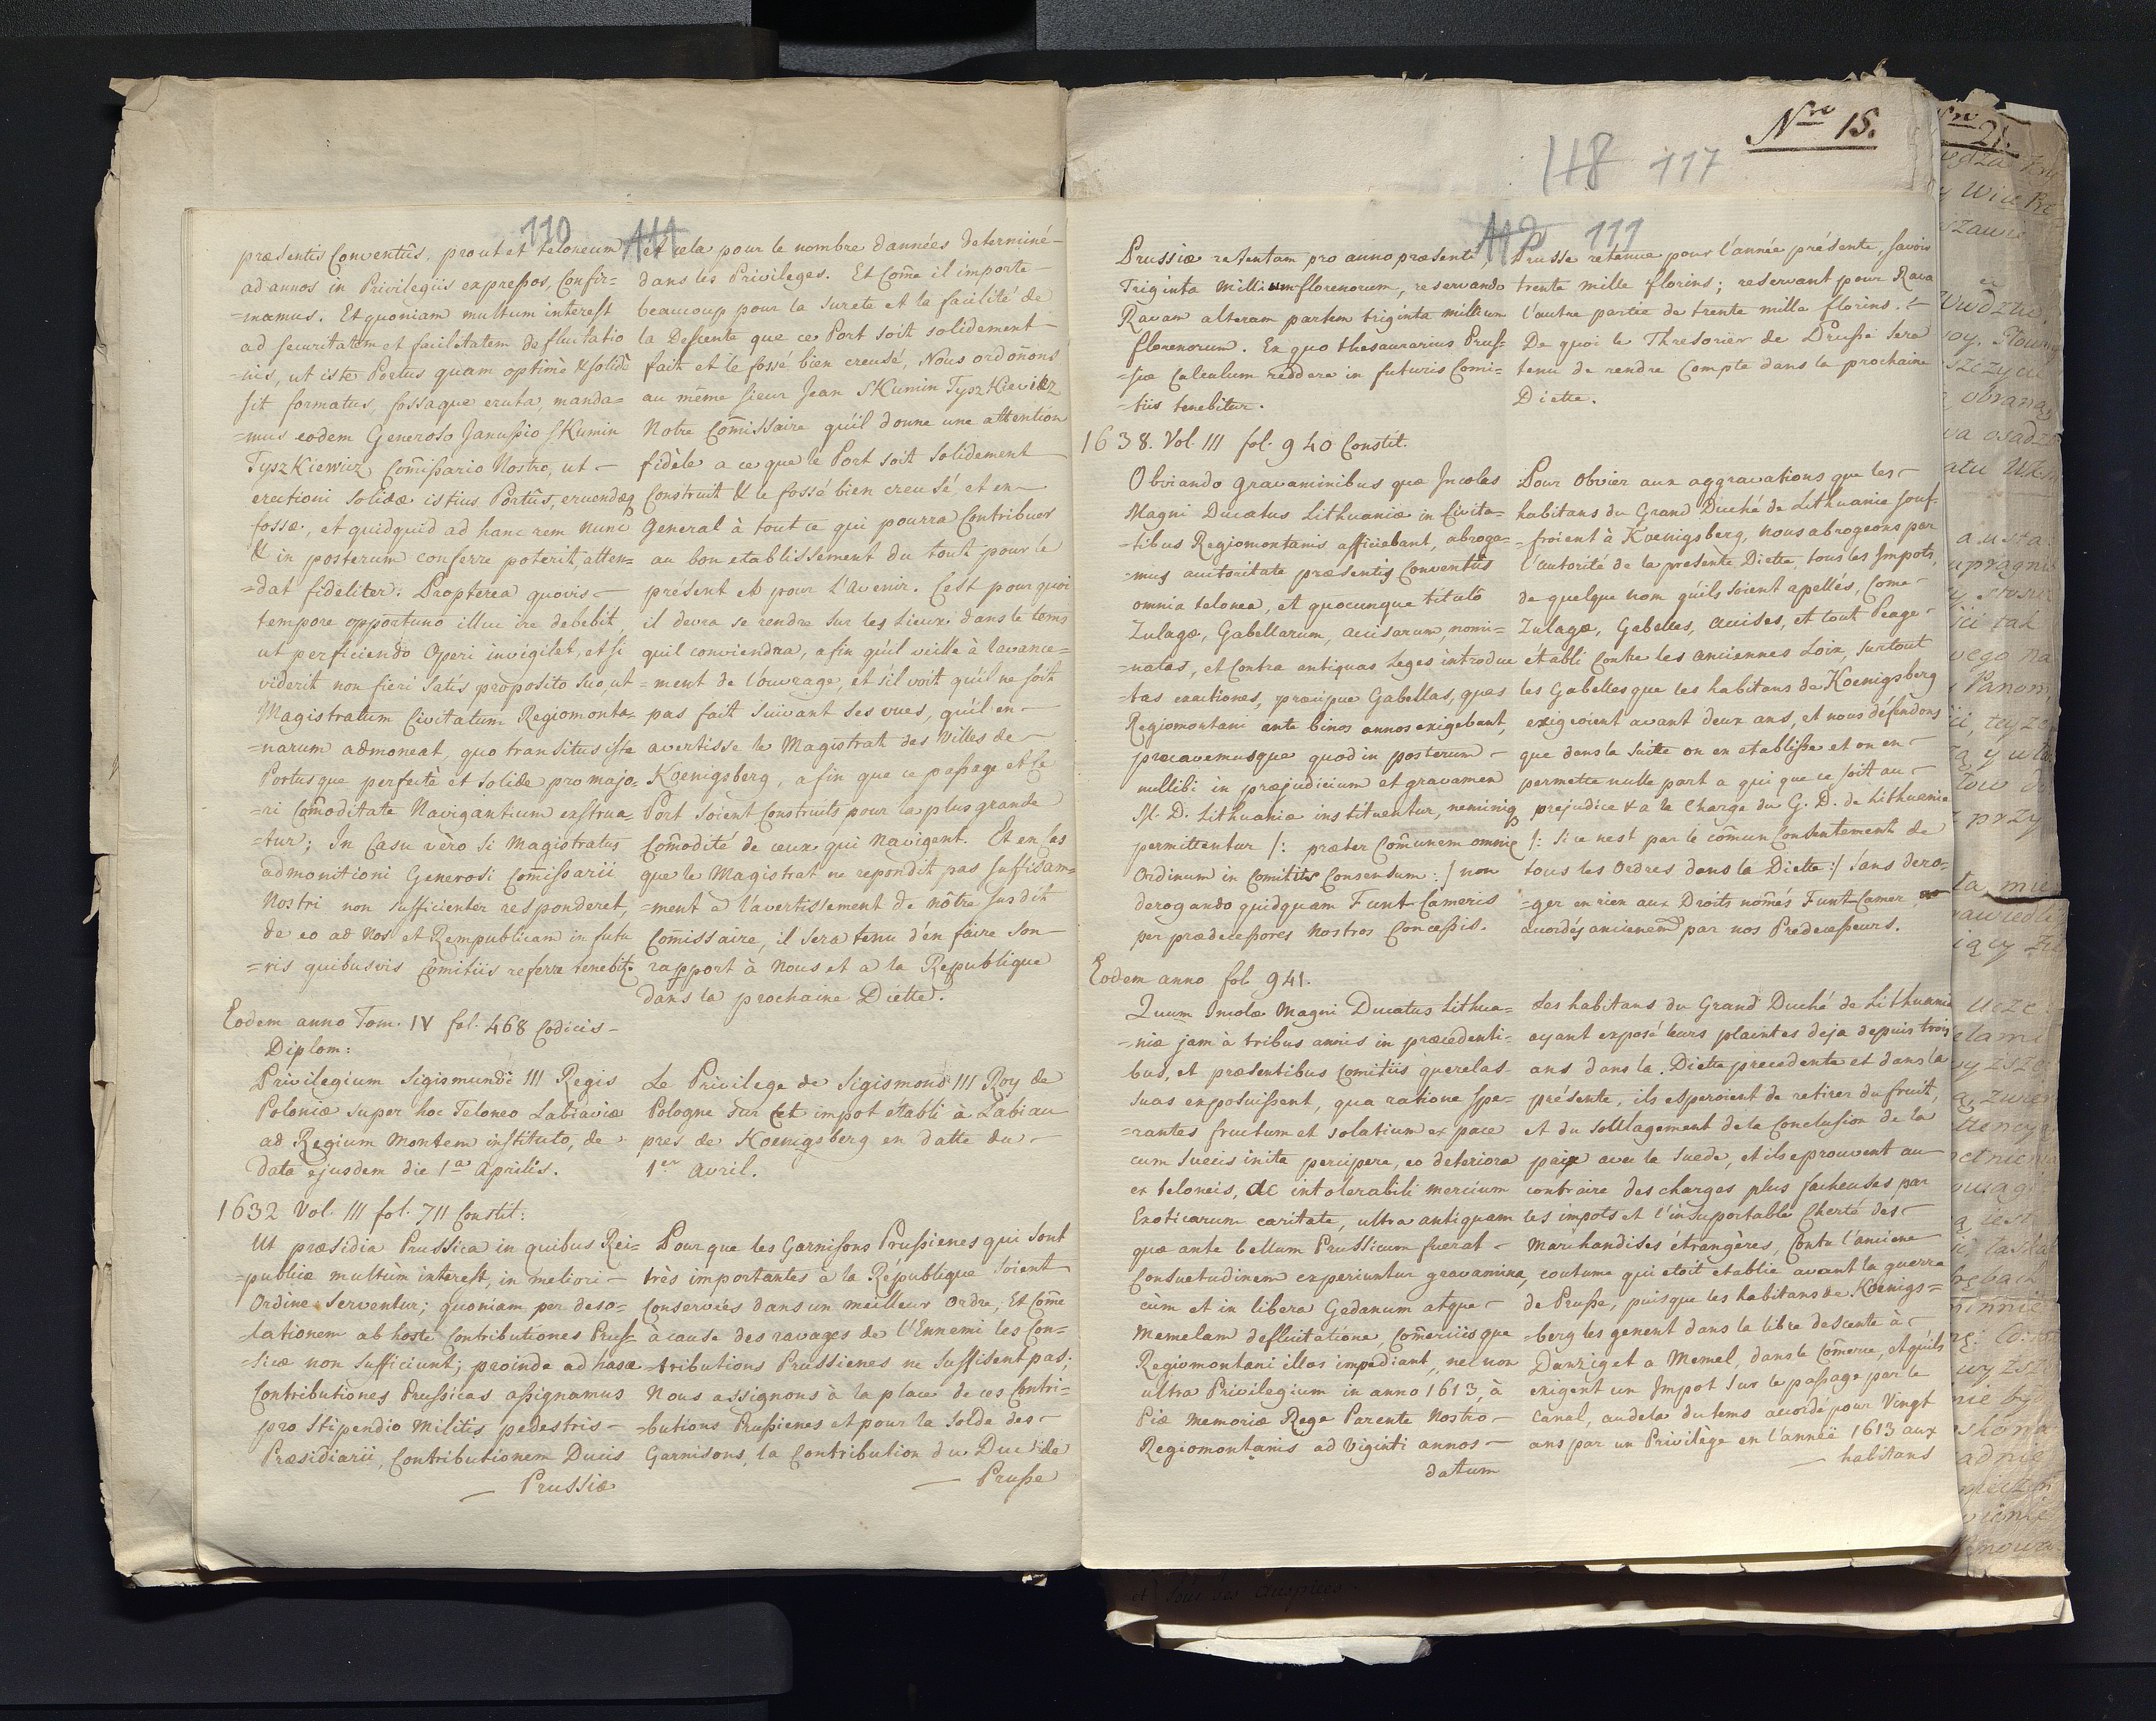 110 111
præsentis Conventûs, prout et teloneum
ad annos in Privilegiis expressos, Confir=
=mamus. Et quoniam multum interest
ad securitatem et facilitatem defluitatio
=nis, ut iste Portus quam optimè & solidè
sit formatus, fossaque eruta, manda=
=mus eodem Generoso Janussio SKumin
TyszKiewicz Com̃issario Nostro, ut
erectioni solidæ istius Portûs, eruendæq
fossæ, et quidquid ad hanc rem nunc
& in posterum conferre poterit, atten=
=dat fideliter. Propterea quovis
tempore opportuno illuc ire debebit,
ut perficiendo Operi invigilet, et si
viderit non fieri satis proposito suo, ut
Magistratum Civitatum Regiomonta=
=narum admoneat, quo transitus iste
Portusque perfectè et solide pro majo=
=ri Com̃oditate Navigantium exstrua=
=tur; In Casu vèro si Magistratus
admonitioni Generosi Com̃issarii
Nostri non sufficienter responderet,
de eo ad Nos et Rempublicam in futu
=ris quibusvis Comitiis referre tenebitr
et cela pour le nombre d'années determiné
dans les Privileges. Et Com̃e il importe
beaucoup pour la Sureté et la facilité de
la Descente que ce Port soit solidement
fait et le fossé bien creusé, Nous ordon̄ons
au même Sieur Jean SKumin TyszKiewicz
Notre Com̃issaire qu'il donne une attention
fidèle a ce que le Port soit solidement
Construit & le fossé bien creusé, et en
General à tout ce qui pourra Contribuer
au bon etablissement du tout pour le
présent et pour l'avenir. C'est pourquoi
il devra se rendre sur les Lieux dans le tems
quil conviendra, afin qu'il veille à l'avance=
=ment de l'ouvrage, et s'il voit qu'il ne soit
pas fait suivant ses vues, qu'il en
avertisse le Magistrat des Villes de
Koenigsberg, afin que ce passage et le
Port soient Construits pour la plus grande
Com̃odité de ceux qui navigent. Et en Cas
que le Magistrat ne repondit pas suffisam=
=ment à l'avertissement de nôtre susdit
Com̃issaire, il sera tenu d'en faire son
rapport à Nous et a la Republique
dans la prochaine Diette.
Eodem anno Tom. IV fol. 468 Codicis
Diplom:
Privilegium Sigismundi III Regis
Poloniæ super hoc Teloneo Labiaviæ
ad Regium Montem instituto, de
data ejusdem die 1a Aprilis.
Le Privilege de Sigismond III Roy de
Pologne sur Cet impot établi à Labiau
pres de Koenigsberg en datte du
1er Avril.
1632 Vol. III fol. 711 Constit:
Ut præsidia Prussica in quibus Rei=
=publicæ multùm interest, in meliori
Ordine Serventur; quoniam per deso=
lationem ab hoste Contributiones Prus=
=sicæ non sufficiunt; proinde ad hasce
Contributiones Prussicas assignamus
pro Stipendio Militis pedestris
Præsidiarii, Contributionem Ducis
Prussiæ
Pour que les Garnisons Prussienes qui sont
très importantes à la République soient
Conservées dans un meilleur Ordre, Et Com̃e
à cause des ravages de l'Ennemi les Con=
=tributions Prussienes ne suffisent pas;
Nous assignons à la place de ces Contri=
=butions Prussienes et pour la Solde des
Garnisons, la Contribution du Duc de
Prusse
Nro 15.
118 117
112 111
Prussiæ retentam pro anno præsente,
Triginta Millium florenorum, reservando
Ravam alteram partem triginta millium
florenorum. Ex quo thesaurarius Prus=
=siæ Calculum reddere in futuris Comi=
=tiis tenebitur.
Prusse retenue pour l'année présente, savoir
trente mille florins; reservant pour Rava
l'autre partie de trente mille florins.
De quoi le Thresorier de Prusse sera
tenu de rendre Compte dans la prochaine
Diette.
1638. Vol. III fol. 940 Constit.
Obviando gravaminibus quæ Incolas
Magni Ducatus Lithuaniæ in Civita=
=tibus Regiomontanis afficiebant, abroga=
=mus auctoritate præsentis Conventûs
omnia telonea, et quocunque titulo
Zulagæ, Gabellarum, accisarum, nomi=
=natas, et Contra antiquas Leges introduc
tas exactiones, præcipue Gabellas, quas
Regiomontani ante binos annos exigebant,
præcavemusque quod in posterum
nullibi in præjudicium et gravamen
M. D. Lithuaniæ instituentur, neminiq
permittentur /: præter Com̃unem omniũ
Ordinum in Comitiis Consensum :/ non
derogando quidquam Funt Cameris
per prædecessores Nostros Concessis.
Pour obvier aux aggravations que les
habitans du Grand Duché de Lithuanie souf=
=froient à Koenigsberg, nous abrogeons par
l'autorité de la presente Diette, tous les Impots,
de quelque nom qu'ils soient apellés, Come
Zulagæ, Gabelles, accises, et tout Peage
établi Contre les anciennes Loix, surtout
les Gabelles que les habitans de Koenigsberg
exigeoient avant deux ans, et nous défendons
que dans la suitte on en etablisse et on en
permette nulle part a qui que ce soit au
prejudice & a la Charge du G. D. de Lithuanie
/: Si ce nest par le com̃un Consentement de
tous les Ordres dans la Diette :/ Sans dero=
=ger en rien aux Droits nom̃és Funt Camer
accordés ancienemt par nos Predecesseurs.
Eodem anno fol. 941.
Quum Incolæ Magni Ducatus Lithua=
=niæ jam à tribus annis in præcedenti=
bus, et præsentibus Comitiis querelas
suas exposuissent, qua ratione spe=
=rantes fructum et solatium ex pace
cum Suecis inita percipere, eo deteriora
ex teloneis, ac intolerabili mercium
Exoticarum caritate, ultra antiquam
quæ ante bellum Prussicum fuerat
Consuetudinem experiuntur gravamina,
cùm et in libera Gedanum atque
Memelam defluitatione, Com̃erciisque
Regiomontani illos impediant, nec non
ultra Privilegium in anno 1613, à
Piæ Memoriæ Rege Parente Nostro
Regiomontanis ad viginti annos
datum
Les habitans du Grand Duché de Lithuanie
ayant exposé leurs plaintes deja depuis trois
ans dans la Diette precedente et dans la
présente, ils esperoient de retirer du fruit,
et du Soulagement de la Conclusion de la
paix avec la Suede, et ils eprouvent au
contraire des charges plus facheuses par
les impots et l'insuportable Cherté des
Marchandises étrangères, Contre l'anciene
coutume qui etoit etablie avant la guerre
de Prusse, puisque les habitans de Koenigs=
=berg les genent dans la libre descente à
Danzig et a Memel, dans le Com̃erce, et qu'ils
exigent un Impot sur le passage par le
Canal, audela du tems accordé pour Vingt
ans par un Privilège en l'année 1613 aux
habitans